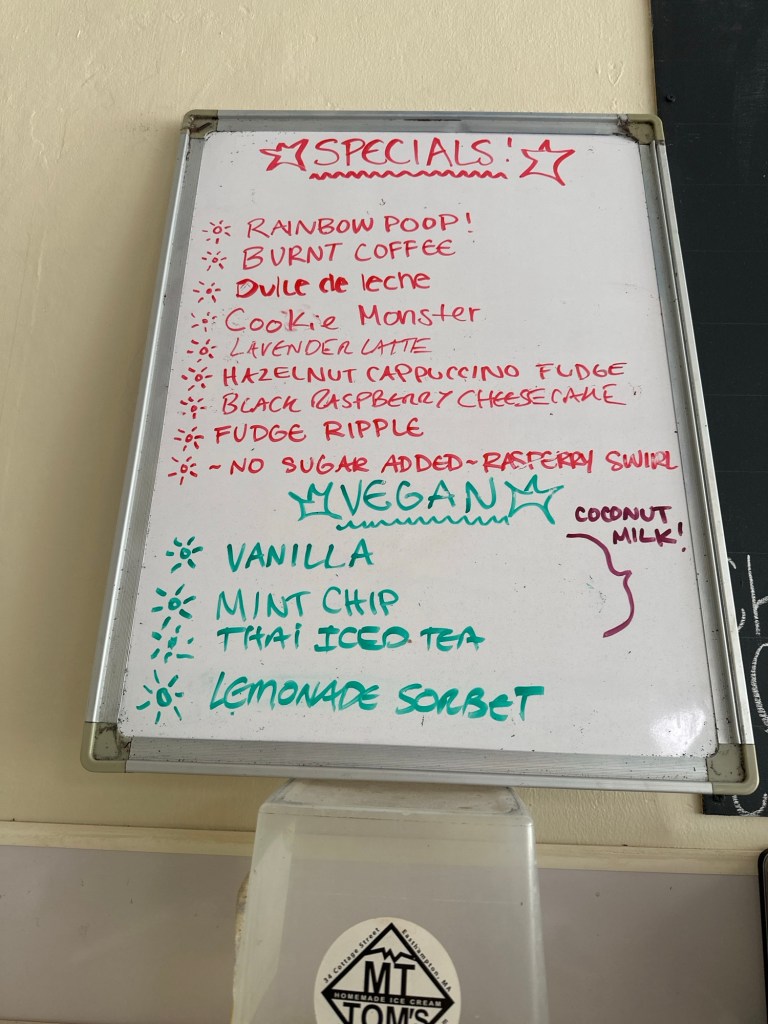 SPECIALS!
RAINBOW POOP!
BURNT COFFEE
Dulce de leche
Cookie Monster
LAVENDER LATTE
HAZELNUT CAPPUCCINO FUDGE
BLACK RASPBERRY CHEESECAKE
FUDGE RIPPLE
~NO SUGAR ADDED~RASPERRY SWIRL
VEGAN
COCONUT
MILK!
VANILLA
MINT CHIP
THAI ICED TEA
LEMONADE SORBET
34 Cottage Street Easthampton, MA
MT
HOMEMADE ICE CREAM
TOM'S